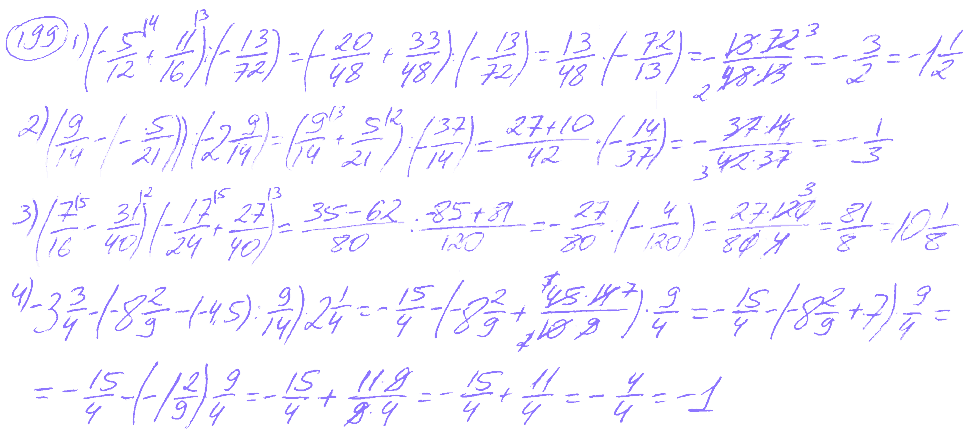 199 1) (-5/12^{14} + 11/16^{13}) : (-13/72) = (-20/48 + 33/48) · (-13/72) = 13/48 · (-72/13) = -13·72^{3}/_{2}48·13 = -3/2 = -1 1/2
2) (9/14 - (-5/21)) · (-2 9/14) = (9/14^{13} + 5/21^{12}) · (37/14) = 27+10/42 · (-14/37) = -37·14/_{3}42·37 = -1/3
3) (7/16^{15} - 31/40^{12}) (-17/24^{15} + 27/40^{13}) = 35-62/80 · -85+81/120 = -27/80 · (-4/120) = 27·120^{3}/80·4 = 81/8 = 10 1/8
4) -3 3/4 - (-8 2/9 - (-4,5) : 9/14) 2 1/4 = -15/4 - (-8 2/9 + 45·14^{7}/_{2}10·9) · 9/4 = -15/4 - (-8 2/9 + 7) 9/4 =
= -15/4 - (-1 2/9) 9/4 = -15/4 + 11·9/9·4 = -15/4 + 11/4 = -4/4 = -1